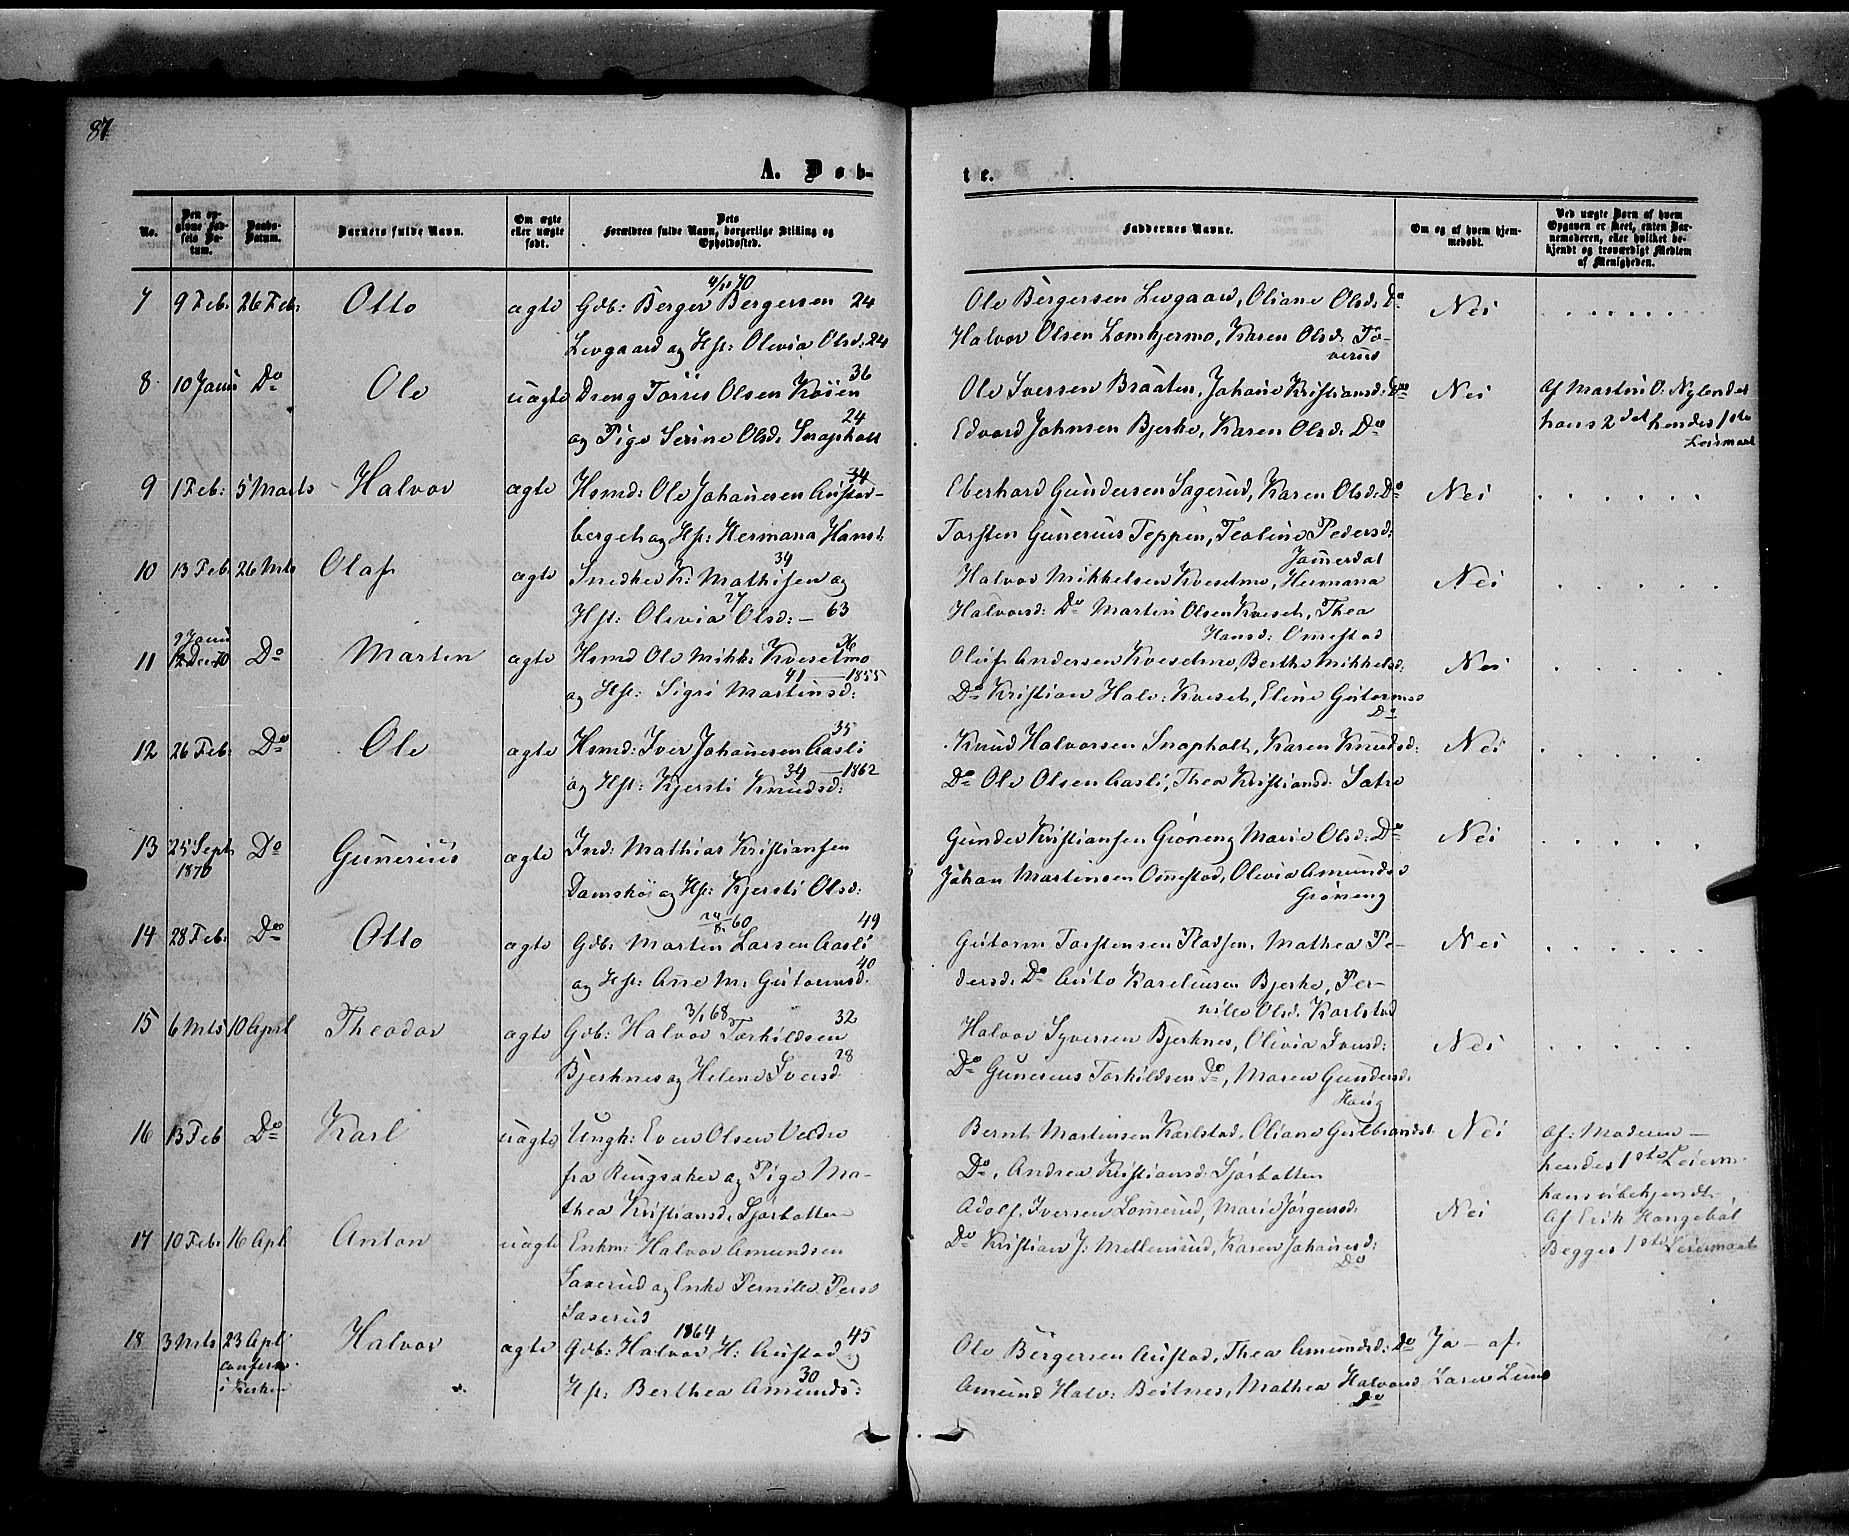 87
A. Døb-
te.
No.
Den opgivne Fødsels Datum.
Daabs-Datum.
Barnets fulde Navn.
Om ægte eller uægte født.
Dets Forældres fulde Navn, borgerlige Stilling og Opholdssted.
Faddernes Navne.
Om og af hvem hjemmedøbt.
Ved uægte Børn af hvem Opgaven er skeet, enten Barnemoderen, eller hvilket bekjendt og troværdigt Medlem af Menigheden.
7 9 Feb: 26 Feb: Otto ægte Gdb: Berger Bergersen 24
Levgaard og Hst: Olivia Olsd: 24
Ole Bergersen Levgaard, Oliane Olsd: Do Nei
Halvor Olsen Lomhjermo, Karen Olsd:
8 10 Janu Do Ole uægte Dreng Törris Olsen Köien 36
og Pige Serine Olsd: Snapholt 24
Ole Iversen Braaten, Johane Kristiansd: Do Nei Af Martin O: Nylendet
Edvard Johnsen Bjerke, Karen Olsd: Do hans 2det hendes 1ste
Leiermaal
9 1 Feb: 5 Marts Halvor ægte Hsmd: Ole Johanesen Austad- 34
berget og Hst: Hermana Hansd:
Eberhard Gundersen Sagerud, Karen Olsd: Do Nei
Torsten Gunerius Teppen, Teoline Pedersd:
10 13 Feb: 26 Mts Olaf ægte Snedker K: Mathisen og 34
Hst: Olivia Olsd: 27 – 63
Halvor Mikkelsen Kveselmo, Hermana Nei
Halvorsd: Do Martin Olsen Kveset, Thea
Hansd: Omestad
11 9 Janu 12 Dec 70 Do Martin ægte Hsmd Ole Mikk: Kveselmo 36
og Hst: Sigri Martinsd: 41 – 1855
Oluf Andersen Kveselmo, Berthe Mikkelsd: Nei
Do Kristian Halv: Kveset, Eline Gutormsd
Do
12 26 Feb: Do Ole ægte Hsmd: Iver Johanesen Aasli 35
og Hst: Kjersti Knudsd: 34 – 1862
Knud Halvorsen Snapholt, Karen Knudsd: Nei
Do Ole Olsen Aasli, Thea Kristiansd: Satre
13 25 Sept 1870 Do Gunerius ægte Ind: Mathias Kristiansen
Damskoi og Hst: Kjersti Olsd:
Gunder Kristiansen Gröneng Marie Olsd: Do Nei
Johan Martinsen Omestad, Olivia Amundsd
Gröneng
14 28 Feb: Do Otto ægte Gdb: Martin Larsen Aasli 60 49
og Hst: Ane M: Gutormsd: 40
Gutorm Torstensen Pladsen, Mathea Pe- Nei
dersd: Do Auto Kareliusen Bjerke, Per-
nille Olsd: Karlstad
15 6 Mts 10 April Theodor ægte Gdb: Halvor Torkildsen 68 32
Bjerknes og Helene Iversd 28
Halvor Syversen Bjerknes, Olivia Iversd: Nei
Do Gunerius Torkildsen Do, Maren Gundersd:
Haug
16 13 Feb Do Karl uægte Ungk: Even Olsen Veldre
fra Ringsaker og Pige Ma-
thea Kristiansd: Sjørbotten
Bernt Martinsen Karlstad, Oliane Gulbrandsd: Nei af: Moderen –
Do, Andrea Kristiansd: Sjørbotten hendes 1ste Leierm:
hans ubekjendt
17 10 Feb: 16 Apl Anton uægte Enkm: Halvor Amundsen
Saxerud og Enke Pernille Persd
Saxerud
Adolf Iversen Lomerud, Marie Jörgensd: Nei Af Erik Haugeböl
Do Kristian J: Mellemrud, Karen Johanesd: Begges 1ste Leiermaal
Do
18 3 Mts 23 Apl Halvor ægte Gdb: Halvor H: Austad og 1864 45
i Kirken Hst: Berthea Amunds: 30
Ole Bergersen Austad, Thea Amundsd: Do Ja – af
Amund Halv: Beitnes, Mathea Halvorsd Laren Lund
Do